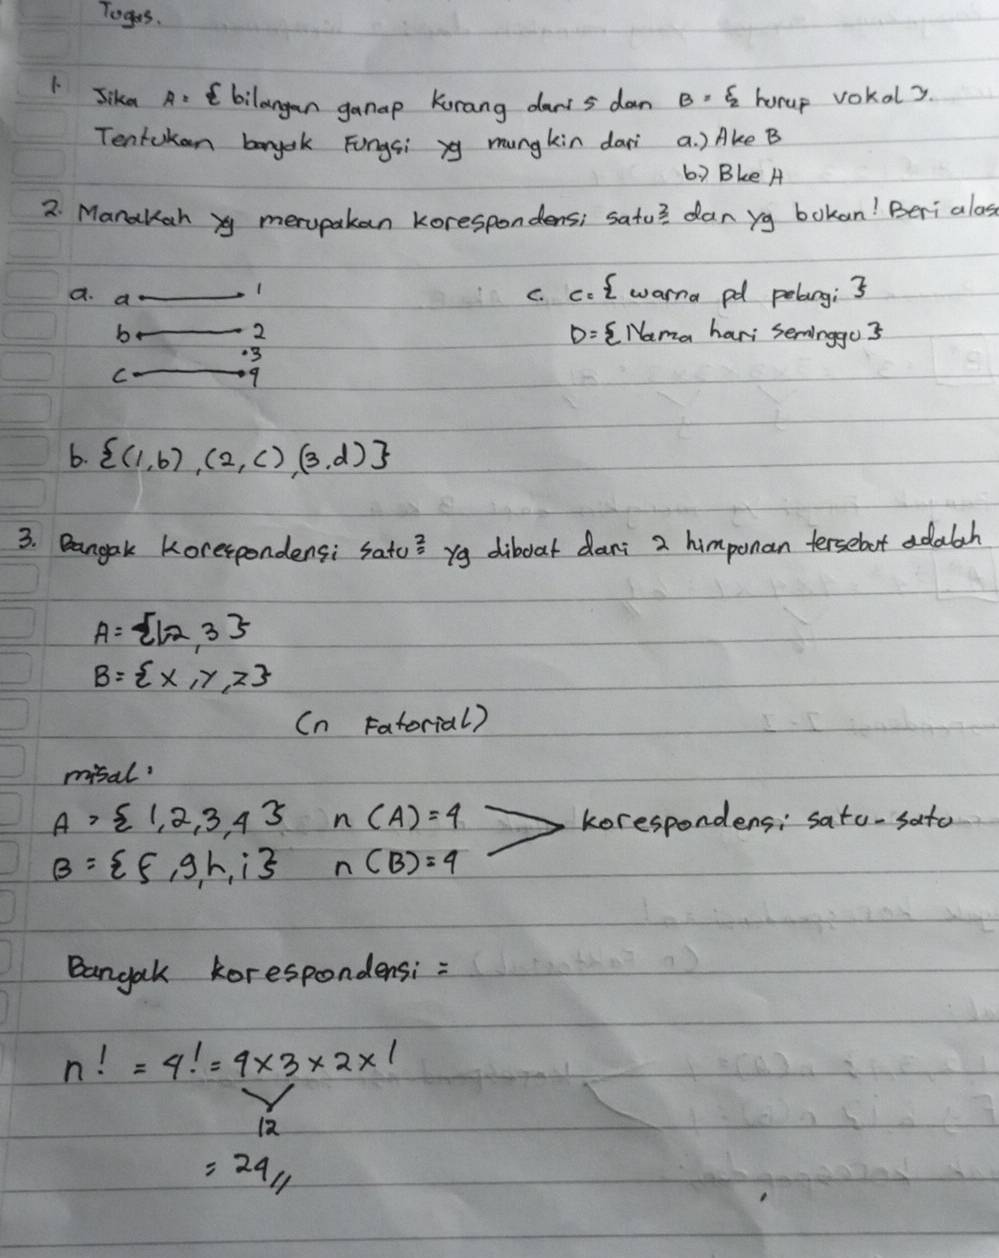 Tugas.
1. Jika A = { bilangan ganap kurang dari 5 dan B = { hurup vokal }.
Tentukan banyak Fungsi yg mungkin dari a.) A ke B
b.) B ke A
2. Manakah yg merupakan korespondensi satu² dan yg bukan! Beri alasa
a. a 1
b 2
3
c 4
c. C = { warna pd pelangi }
D = { Nama hari seminggu }
b. {(1,b), (2,c), (3,d)}
3. Banyak korespondensi satu² yg dibuat dari 2 himpunan tersebut adalah
A = {1,2,3}
B = {x,y,z}
(n Fatorial)
misal :
A = { 1,2,3,4 } n (A) = 4
B = { f,g,h,i } n (B) = 4
korespondensi satu-satu
Banyak korespondensi =
n! = 4! = 4 x 3 x 2 x 1
12
= 24 //